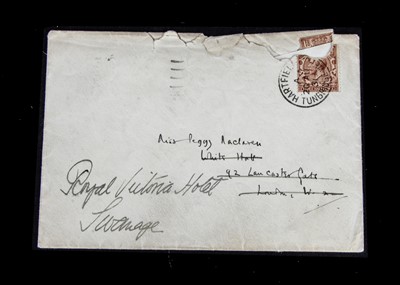 HARTFIEL TUNBR
Miss Peggy Maclaren
White Hall
92 Lancaster Gate
London, W.
Royal Victoria Hotel
Swanage